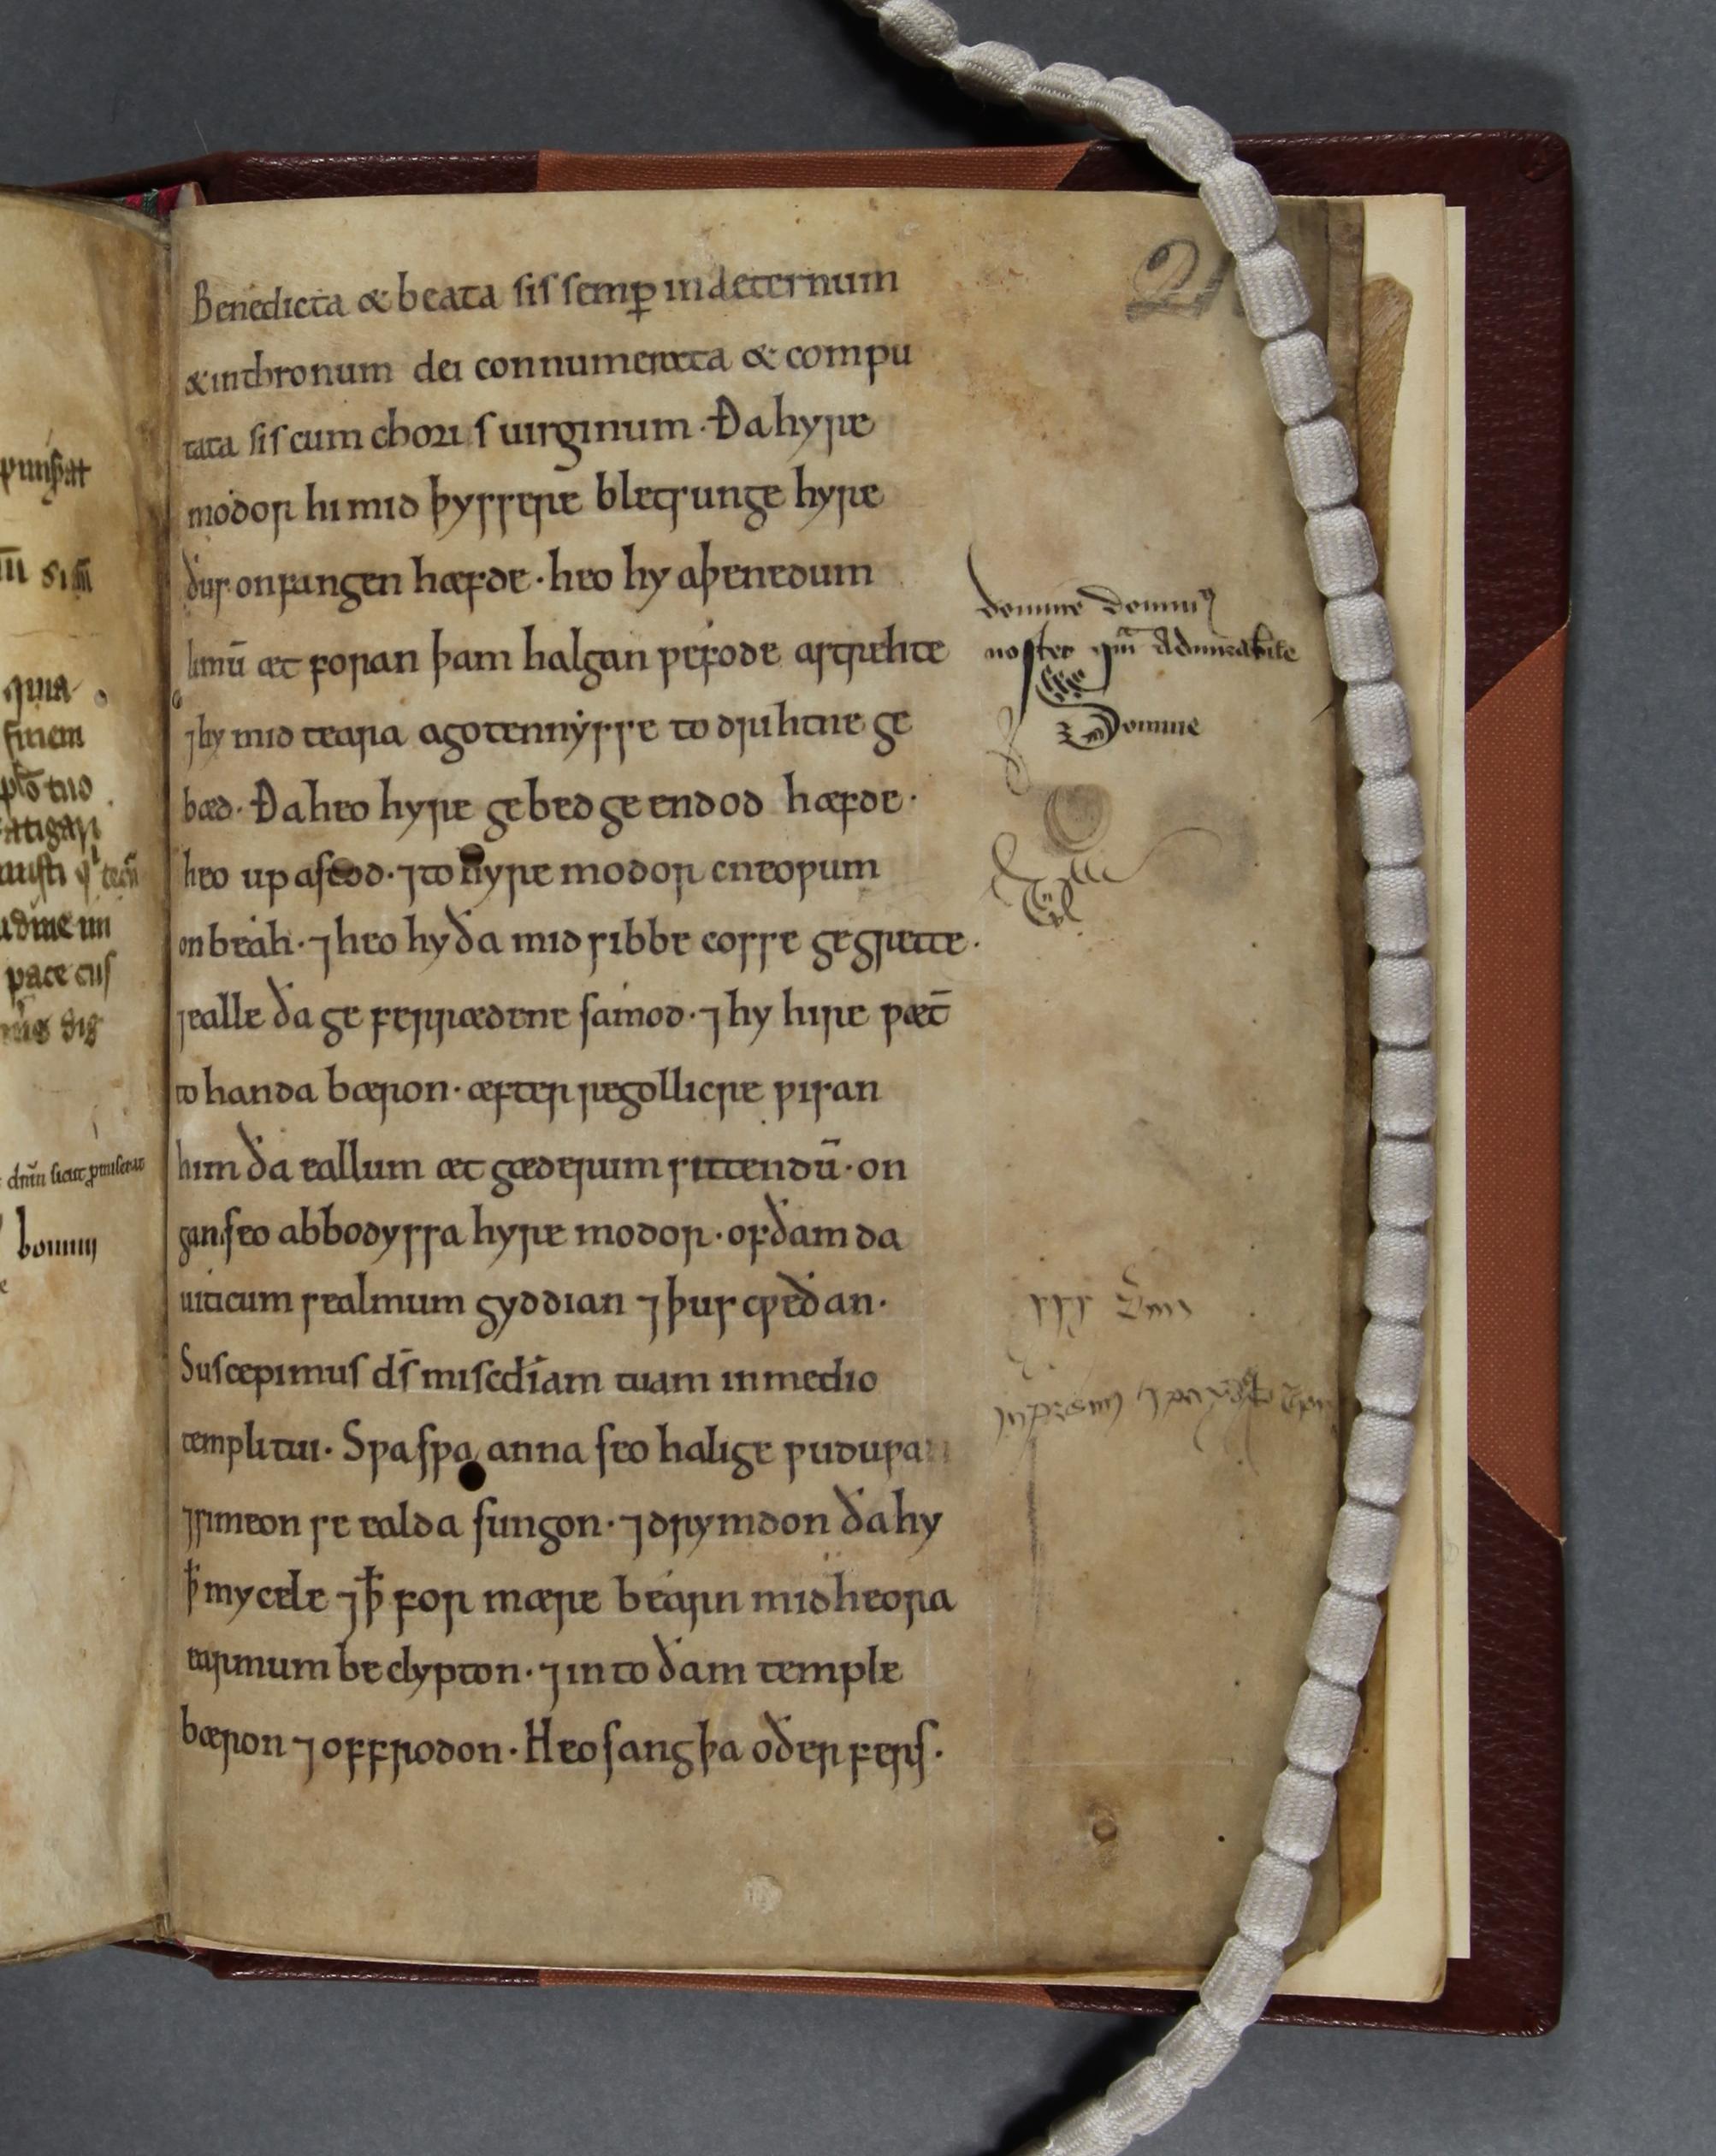 Benedicta & beata sis semꝑ in aeternum
& in thronum dei connumerata & compu
tata sis cum choris uirginum · Ða hyre
modor hi mid þyssere bletsunge hyre
ðus onfangen hæfde · heo hy aþenedum
limū æt foran þam halgan ƿefode astrehte
⁊ hy mid teara agotennysse to drihtne ge
bæd · Ða heo hyre gebed geendod hæfde ·
heo up astod · ⁊ to hyre modor cneoƿum
onbeah · ⁊ heo hy ða mid sibbe cosse gegrette ·
⁊ ealle ða geferrædene samod · ⁊ hy hire ƿæt̄
to handa bæron · æfter regollicre ƿisan
him ða eallum æt gæderum sittendū · on
gan seo abbodyssa hyre modor · of ðam da
uiticum sealmum gyddian ⁊ þus cƿeðan ·
Suscepimus ds̄ misedīam tuam in medio
templi tui · Sƿa sƿa anna seo halige ƿuduƿa
⁊ simeon se ealda sungon · ⁊ drymdon ða hy
ꝥ mycele ⁊ ꝥ formære bearn mid heora
earmum beclypton · ⁊ in to ðam temple
bæron ⁊ offrodon · Heo sang þa oðer fers ·
21
domine dominꝰ
noster qm̄ Admirabile
Domine
quia
finem
pace cus